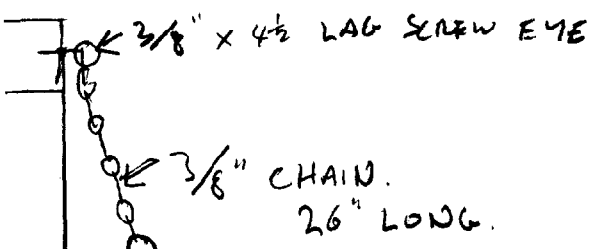 3/8" x 4½ LAG SCREW EYE
3/8" CHAIN.
26" LONG.